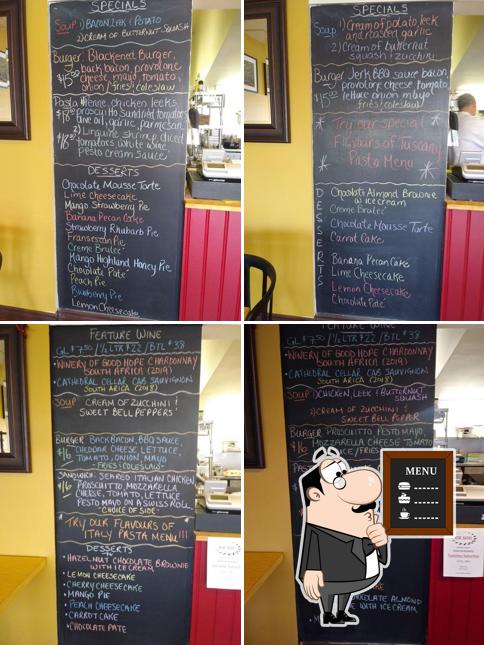 SPECIALS
SOUP 1) BACON, LEEK & POTATO
2) CREAM OF BUTTERNUT SQUASH
Burger Blackened Burger,
$15 back bacon, provolone
cheese, mayo, tomato,
onion / fries & coleslaw
Pasta 1) Penne, chicken, leeks,
$18 sundried tomatoes
garlic, parmesan
2) Linguine, shrimp, diced
tomatoes, white wine,
pesto cream sauce
DESSERTS
Chocolate Mousse Torte
Lime Cheesecake
Mango Strawberry Pie
Banana Pecan Cake
Strawberry Rhubarb Pie
Creme Brulee
Mango Highland Honey Pie
Chocolate Pate
Peach Pie
Blueberry Pie
Lemon Cheesecake
SPECIALS
Soup 1) Cream of potato, leek
and roasted garlic
2) Cream of butternut
squash & zucchini
Burger Jerk BBQ sauce, bacon,
$15 provolone cheese, tomato,
lettuce, onion, mayo
fries & coleslaw
Try our special
Flavours of Tuscany
Pasta Menu
DESSERTS
Chocolate Almond Brownie
w icecream
Creme Brulee
Chocolate Mousse Torte
Carrot Cake
Banana Pecan Cake
Lime Cheesecake
Lemon Cheesecake
Chocolate Pate
FEATURE WINE
GL $7.50 / ½ LTR $22 / BTL $38
• WINERY OF GOOD HOPE CHARDONNAY
SOUTH AFRICA (2019)
• CATHEDRAL CELLAR CAB SAUVIGNON
SOUTH AFRICA (2018)
SOUP CREAM OF ZUCCHINI &
SWEET BELL PEPPERS
BURGER BACK BACON, BBQ SAUCE,
$16 CHEDDAR CHEESE, LETTUCE,
TOMATO, ONION, MAYO
FRIES & COLESLAW
SANDWICH- SEARED ITALIAN CHICKEN
$16 PROSCIUTTO, MOZZARELLA
CHEESE, TOMATO, LETTUCE
PESTO MAYO ON A SWISS ROLL
*CHOICE OF SIDE*
TRY OUR FLAVOURS OF
ITALY PASTA MENU!!!
DESSERTS
• HAZELNUT CHOCOLATE BROWNIE
WITH ICECREAM
• LEMON CHEESECAKE
• CHERRY CHEESECAKE
• MANGO PIE
• PEACH CHEESECAKE
• CARROT CAKE
• CHOCOLATE PATE
FEATURE WINE
GL $7.50 / ½ LTR $22 / BTL $38
• WINERY OF GOOD HOPE CHARDONNAY
SOUTH AFRICA (2019)
• CATHEDRAL CELLAR CAB SAUVIGNON
SOUTH AFRICA (2018)
SOUP 1) CHICKEN, LEEK & BUTTERNUT
SQUASH
2) CREAM OF ZUCCHINI &
SWEET BELL PEPPER
BURGER PROSCIUTTO PESTO MAYO,
$16 MOZZARELLA CHEESE TOMATO
MENU
CHOCOLATE ALMOND
WITH ICECREAM